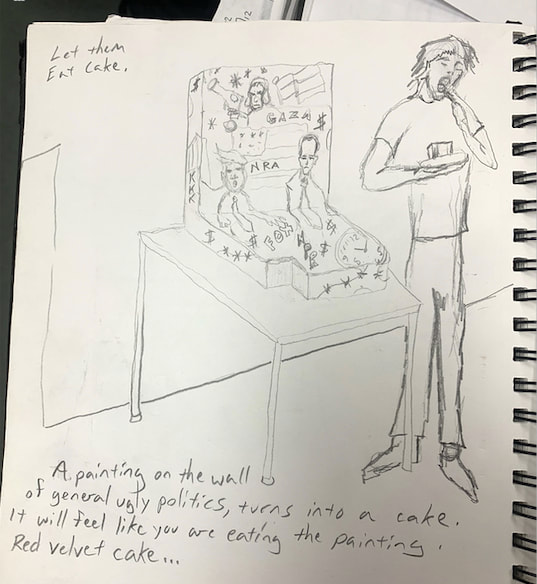 Let them
Eat Cake.
GAZA $
NRA
KKK
A painting on the wall
of general ugly politics, turns into a cake.
It will feel like you are eating the painting.
Red velvet cake...